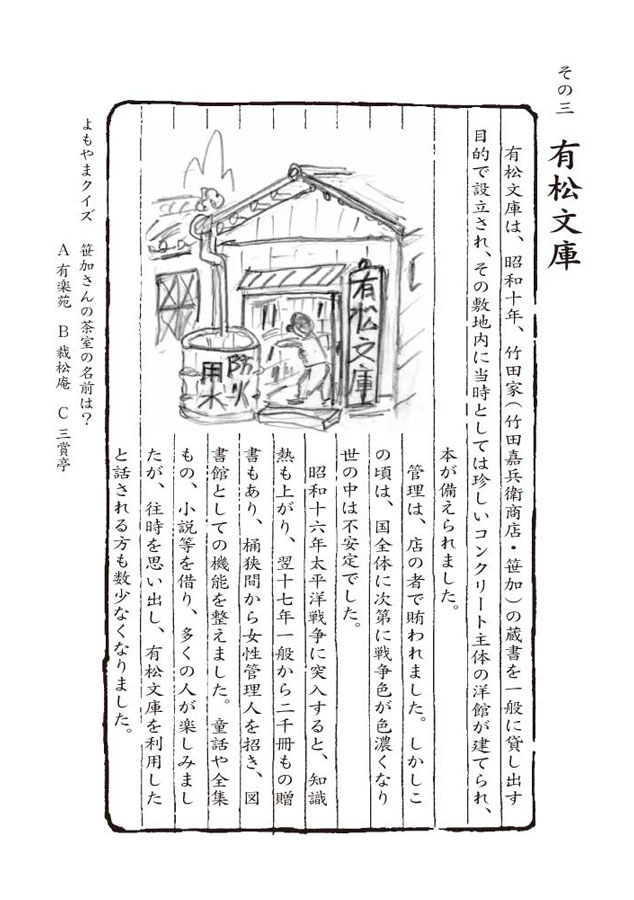 その三 有松文庫
有松文庫は、昭和十年、竹田家(竹田嘉兵衛商店・笹加)の蔵書を一般に貸し出す
目的で設立され、その敷地内に当時としては珍しいコンクリート主体の洋館が建てられ、
本が備えられました。
管理は、店の者で賄われました。しかしこ
の頃は、国全体に次第に戦争色が色濃くなり
世の中は不安定でした。
昭和十六年太平洋戦争に突入すると、知識
熱も上がり、翌十七年一般から二千冊もの贈
書もあり、桶狭間から女性管理人を招き、図
書館としての機能を整えました。童話や全集
もの、小説等を借り、多くの人が楽しみまし
たが、往時を思い出し、有松文庫を利用した
と話される方も数少なくなりました。
有松文庫
防火
用水
よもやまクイズ 笹加さんの茶室の名前は?
A 有楽苑 B 栽松庵 C 三賞亭